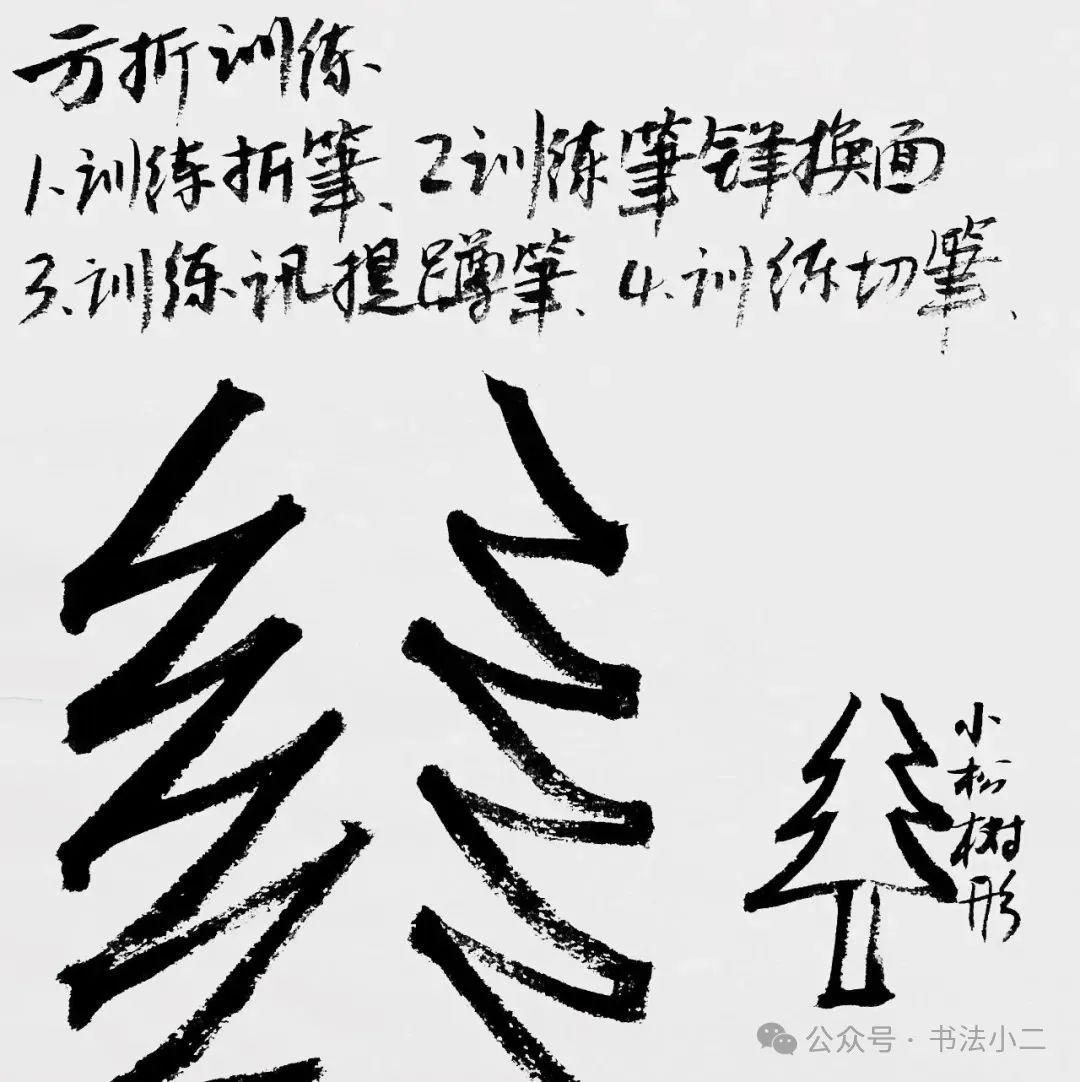 方折训练.
1.训练折筆、2训练筆锋换面
3.训练讯提蹲筆、4.训练切筆、
小松树形
公众号·书法小二